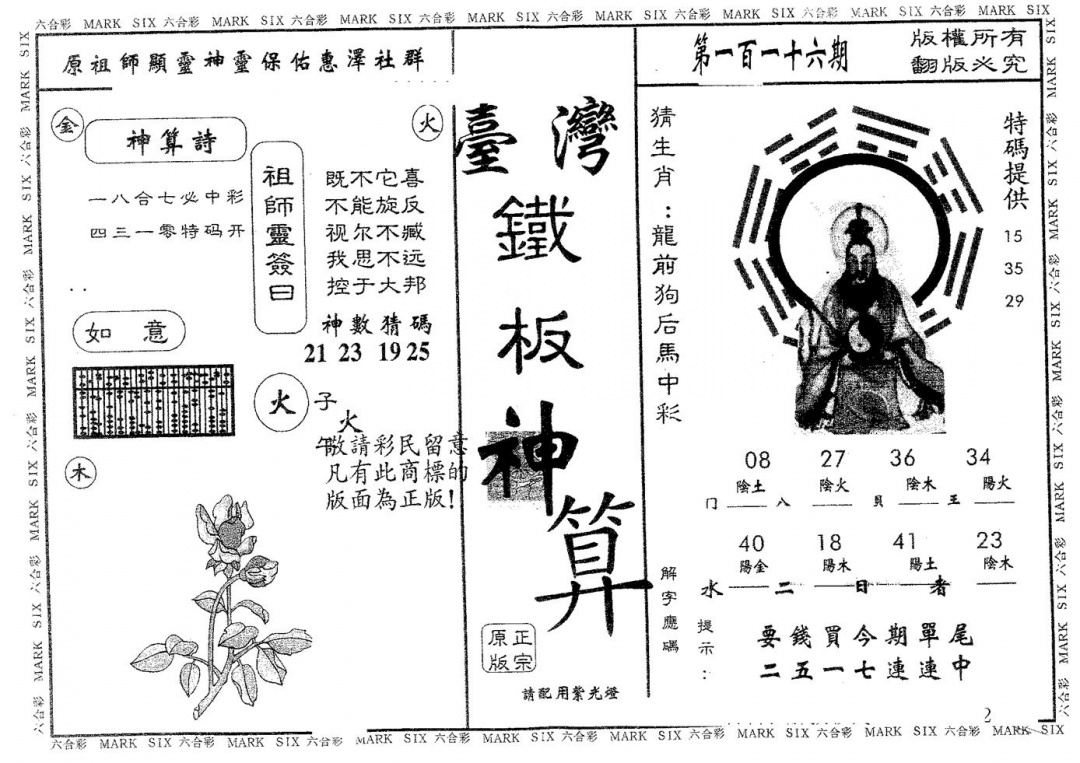 六合彩 MARK SIX 六合彩 MARK SIX 六合彩 MARK SIX 六合彩 MARK SIX 六合彩 MARK SIX 六合彩 MARK SIX 六合彩 MARK SIX 六合彩 MARK SIX
原祖師顯靈神靈保佑惠澤社群
金
神算詩
火
一八合七必中彩
四三一零特码开
祖師靈簽曰
既不它喜
不能旋反
视尔不臧
我思不远
控于大邦
神數猜碼
21 23 19 25
如意
火
子
火
午
敬請彩民留意
凡有此商標的
版面為正版!
木
臺灣
鐵板神算
正宗
原版
請配用紫光燈
第一百一十六期
版權所有
翻版必究
猜生肖:龍前狗后馬中彩
特碼提供
15
35
29
08 27 36 34
陰土 陰火 陰木 陽火
门 八 貝 王
40 18 41 23
陽金 陽木 陽土 陰木
水 二 日 者
解字應碼
提示:
要錢買今期單尾
二五一七連連中
2
六合彩 MARK SIX 六合彩 MARK SIX 六合彩 MARK SIX 六合彩 MARK SIX 六合彩 MARK SIX 六合彩 MARK SIX 六合彩 MARK SIX 六合彩 MARK SIX